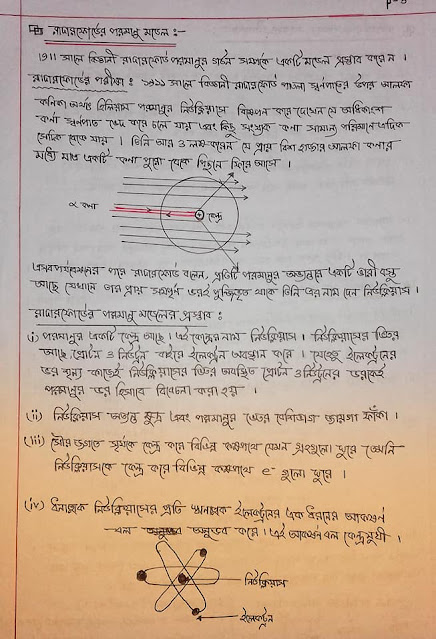 রাদারফোর্ডের পরমাণু মডেল :-
1911 সালে বিজ্ঞানী রাদারফোর্ড পরমাণুর গঠন সম্পর্কে একটি মডেল প্রস্তাব করেন ।
রাদারফোর্ডের পরীক্ষা : ১৯১১ সালে বিজ্ঞানী রাদারফোর্ড পাতলা স্বর্ণপাতের উপর আলফা
কনিকা অর্থাৎ হিলিয়াম পরমাণুর নিউক্লিয়াসে নিক্ষেপন করে দেখেন যে অধিকাংশ
কণা স্বর্ণপাত ভেদ করে চলে যায় এবং কিছু সংখ্যক কণা সামান্য পরিমানে এদিক
সেদিক বেঁকে যায় । তিনি আর ও লক্ষ্য করেন যে প্রায় বিশ হাজার আলফা কনার
মধ্যে মাত্র একটি কনা পুরো বেঁকে পিছনে ফিরে আসে ।
α কণা
কেন্দ্র
এসব পর্যবেক্ষনের পরে রাদারফোর্ড বলেন, প্রতিটি পরমাণুর অভ্যন্তরে একটি ভারী বস্তু
আছে যেখানে তার প্রায় সম্পূর্ণ ভরই পুঞ্জিভূত থাকে তিনি এর নাম দেন নিউক্লিয়াস ।
রাদারফোর্ডের পরমাণু মডেলের প্রস্তাব :
(i) পরমাণুর একটি কেন্দ্র আছে । এই কেন্দ্রের নাম নিউক্লিয়াস । নিউক্লিয়াসের ভিতর
আছে প্রোটন ও নিউট্রন বাইরে ইলেকট্রন অবস্থান করে । যেহেতু ইলেকট্রনের
ভর শূন্য কাজেই নিউক্লিয়াসের ভিতর অবস্থিত প্রোটন ও নিউট্রনের ভরকেই
পরমাণুর ভর হিসাবে বিবেচনা করা হয় ।
(ii) নিউক্লিয়াস অত্যন্ত ক্ষুদ্র এবং পরমাণুর ভেতর বেশিরভাগ জায়গা ফাঁকা ।
(iii) সৌর জগতে সূর্যকে কেন্দ্র করে বিভিন্ন কক্ষপথে যেমন গ্রহগুলো ঘুরে তেমনি
নিউক্লিয়াসকে কেন্দ্র করে বিভিন্ন কক্ষপথে e⁻ গুলো ঘুরে ।
(iv) ধনাত্মক নিউক্লিয়াসের প্রতি ঋনাত্মক ইলেকট্রনের এক ধরনের আকর্ষণ
বল অনুভব করে । এই আকর্ষন বল কেন্দ্রমুখী ।
নিউক্লিয়াস
ইলেকট্রন